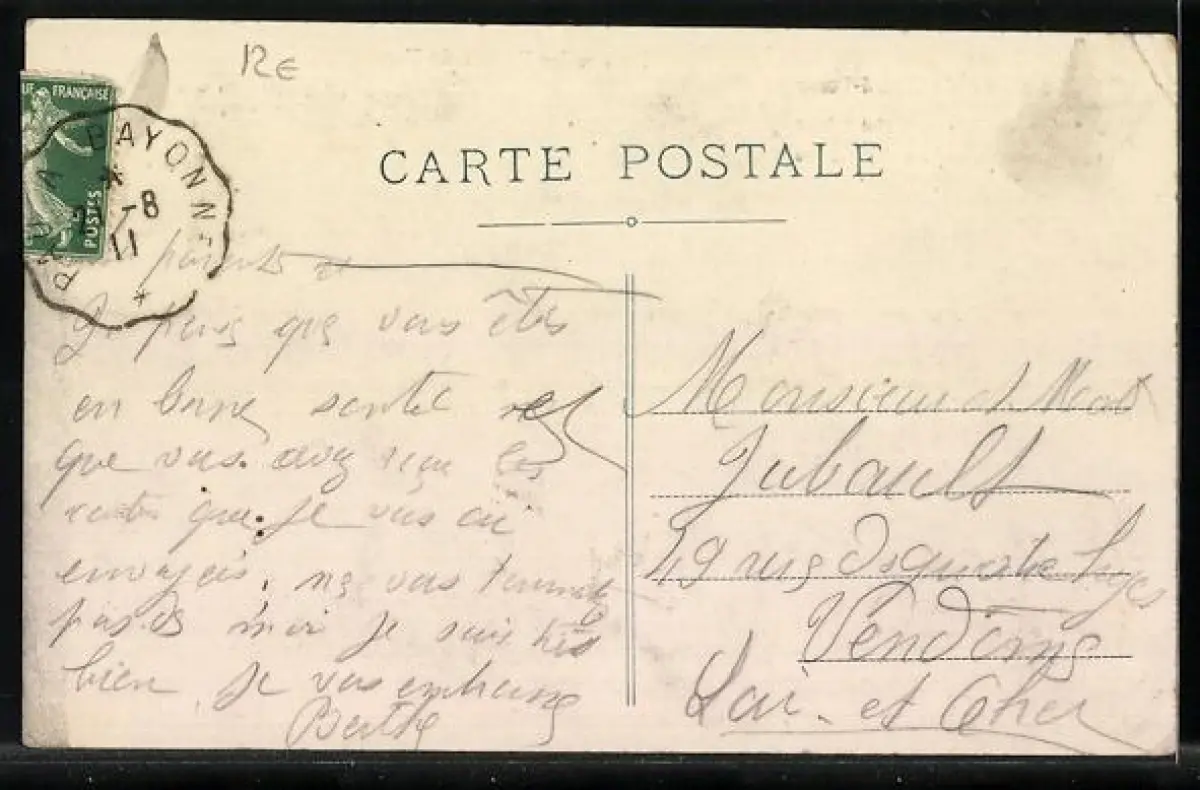 12€
UE FRANÇAISE
POSTES
A BAYONNE
-8
11
CARTE POSTALE
parents et
Je pense que vous êtes
en bonne santé et
que vous avez reçu les
cartes que je vous ai
envoyeis, ne vous tourmentez
pas de moi je suis très
bien Je vous embrasse
Berthe
Monsieur et Mad
Jubault
29 rue
Vendome
Loir et Cher